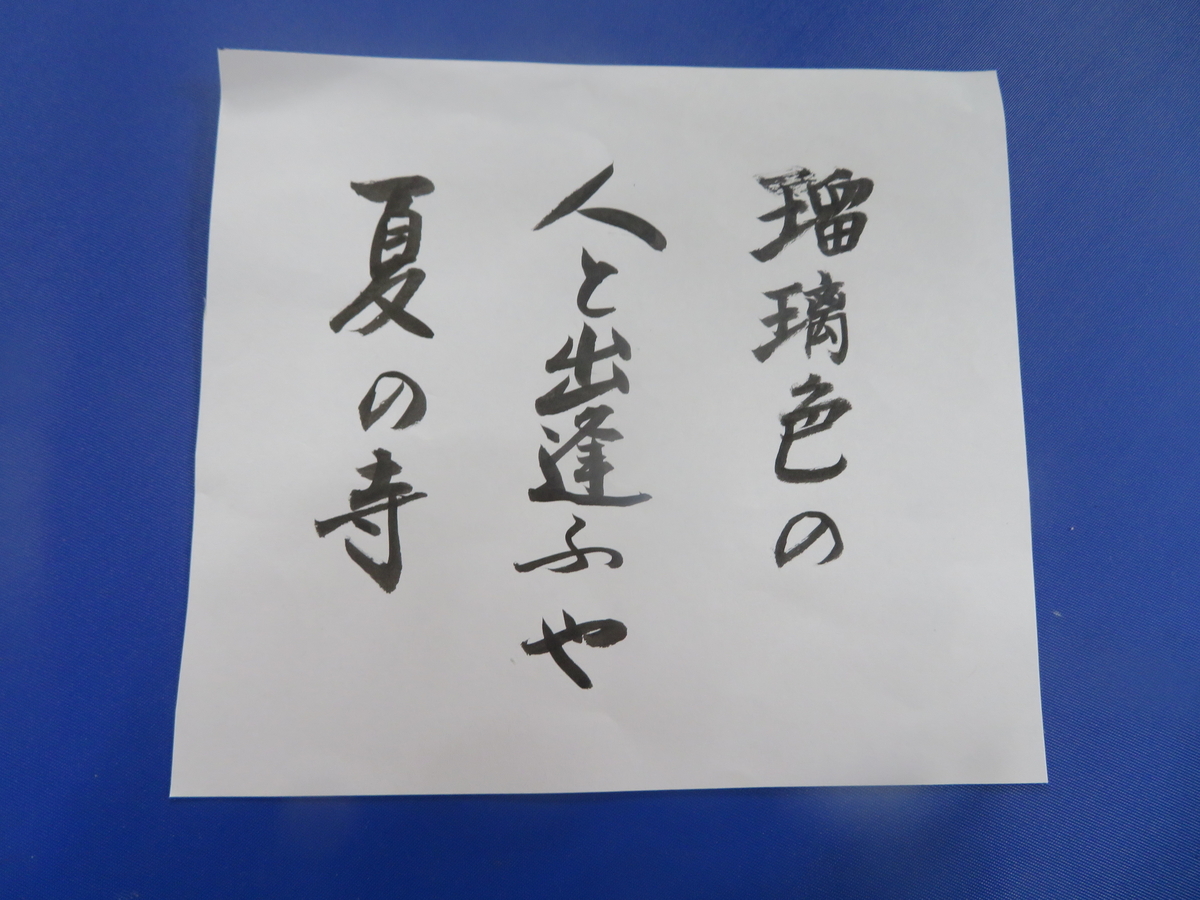 瑠璃色の
人と出逢ふや
夏の寺